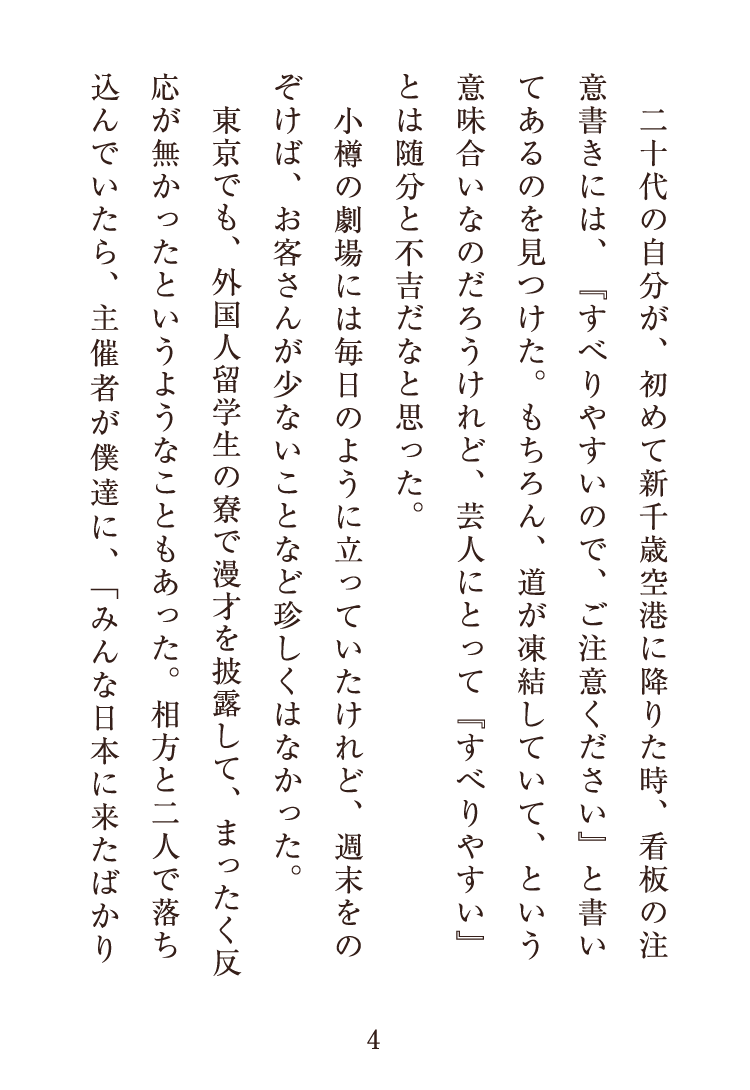 二十代の自分が、初めて新千歳空港に降りた時、看板の注
意書きには、『すべりやすいので、ご注意ください』と書い
てあるのを見つけた。もちろん、道が凍結していて、という
意味合いなのだろうけれど、芸人にとって『すべりやすい』
とは随分と不吉だなと思った。
　小樽の劇場には毎日のように立っていたけれど、週末をの
ぞけば、お客さんが少ないことなど珍しくはなかった。
　東京でも、外国人留学生の寮で漫才を披露して、まったく反
応が無かったというようなこともあった。相方と二人で落ち
込んでいたら、主催者が僕達に、「みんな日本に来たばかり
4